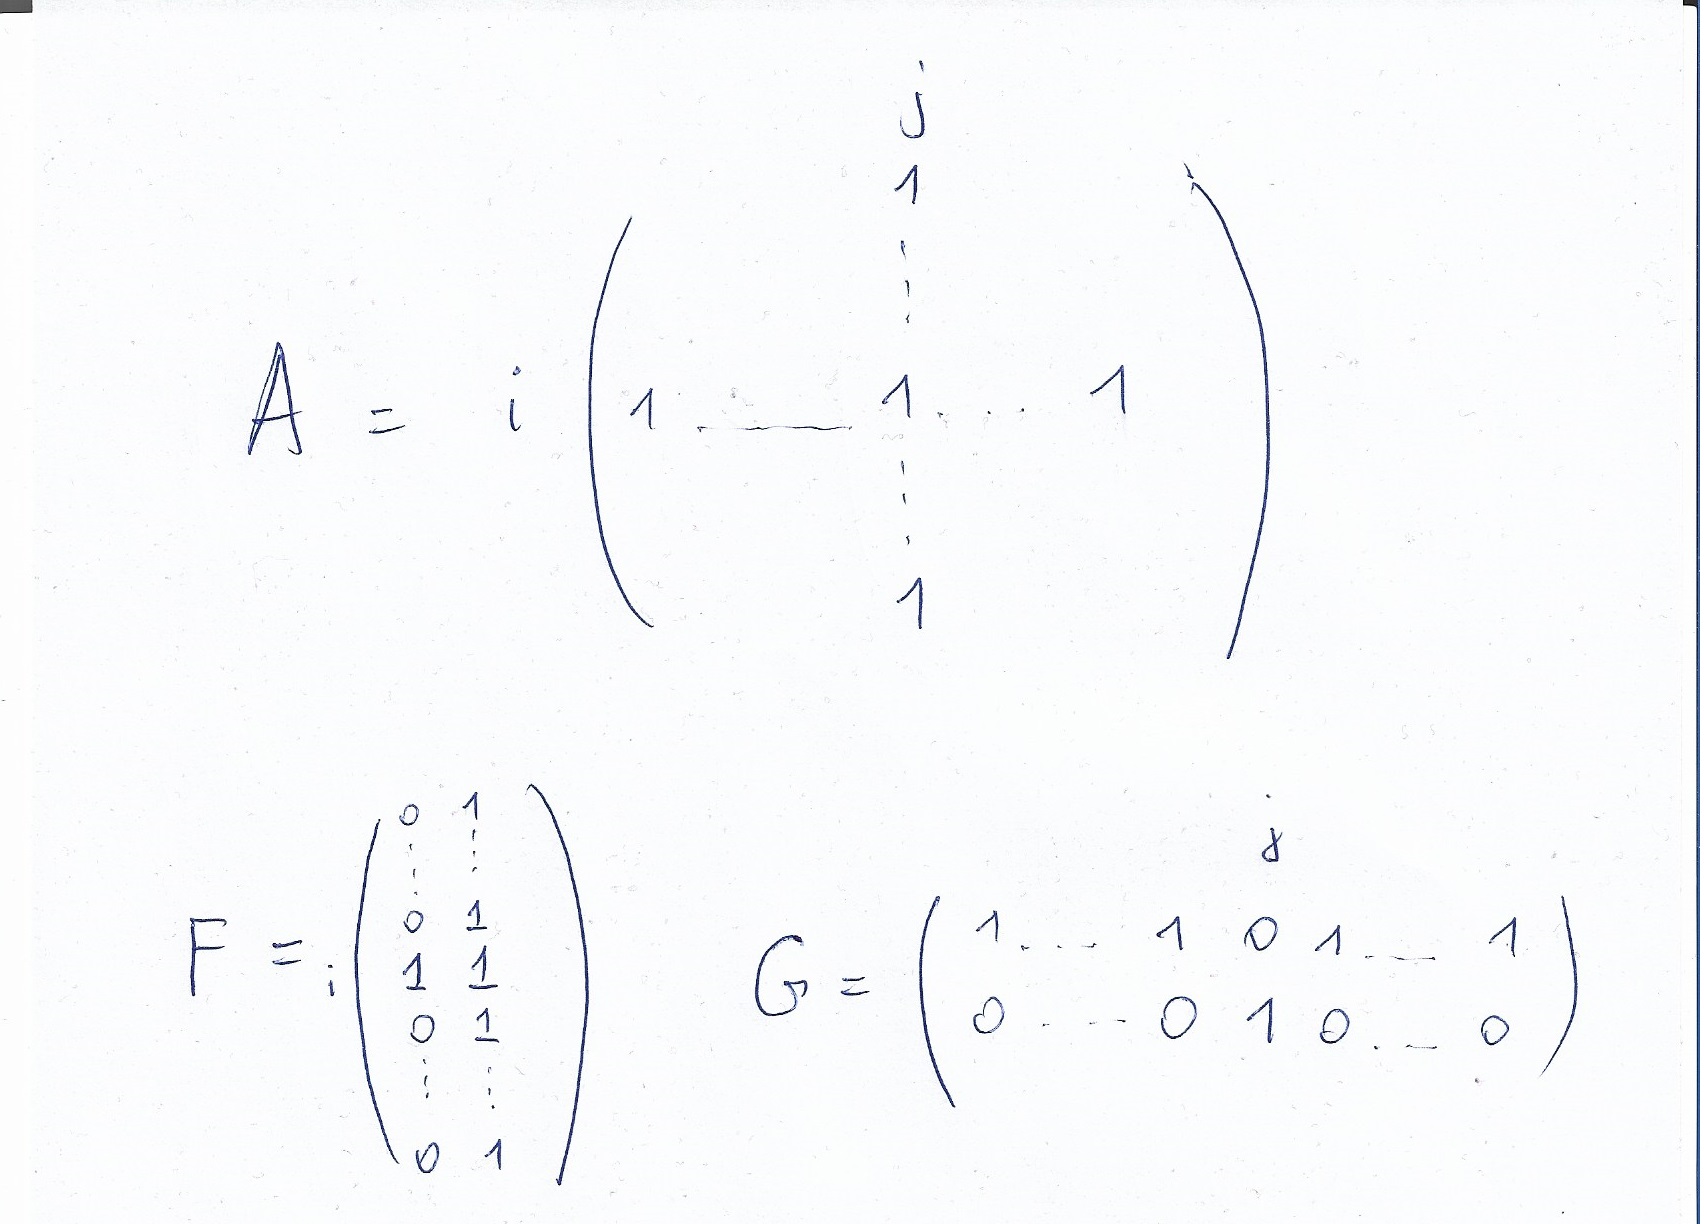 j
1
⋮
A = i ( 1 ... 1 ... 1 )
⋮
1
F = i ( 0 1
⋮ ⋮
0 1
1 1
0 1
⋮ ⋮
0 1 )
j
G = ( 1 ... 1 0 1 ... 1
0 ... 0 1 0 ... 0 )